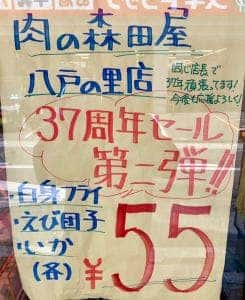 肉の森田屋
八戸の里店
同じ店長で
37年頑張ってます!
今後も応援よろしく!
37周年セール
第一弾!!
・白身フライ
・えび団子
・いか
(各)
¥55